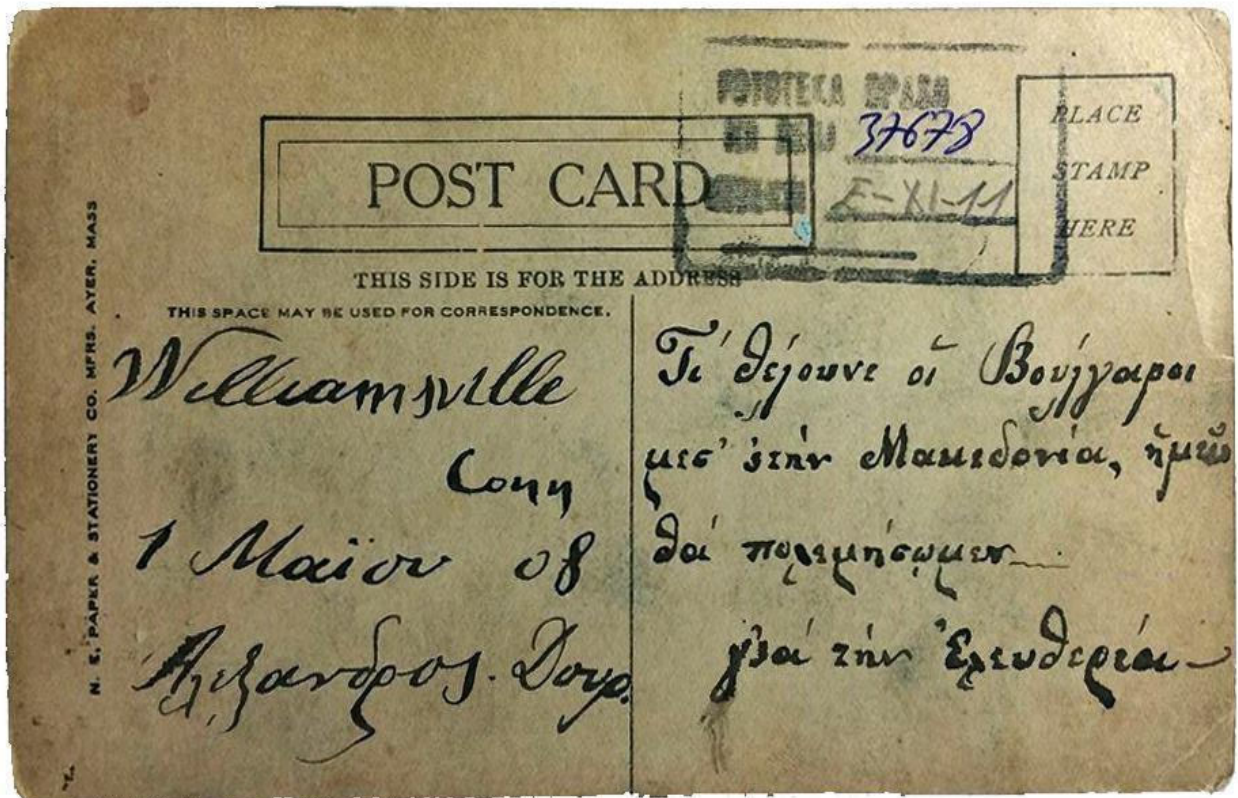 37678
E-XI-11
POST CARD
PLACE
STAMP
HERE
THIS SIDE IS FOR THE ADDRESS
THIS SPACE MAY BE USED FOR CORRESPONDENCE.
N. E. PAPER & STATIONERY CO. MFRS. AYER, MASS
Williamsville
Conn
1 Μαΐου 08
Ἀλέξανδρος.
Τί θέλουνε οἵ Βούλγαροι
μεσ' 'στὴν Μακεδονία, ἡμεῖς
θά πολεμήσωμεν
γιά τήν Ἐλευθερία